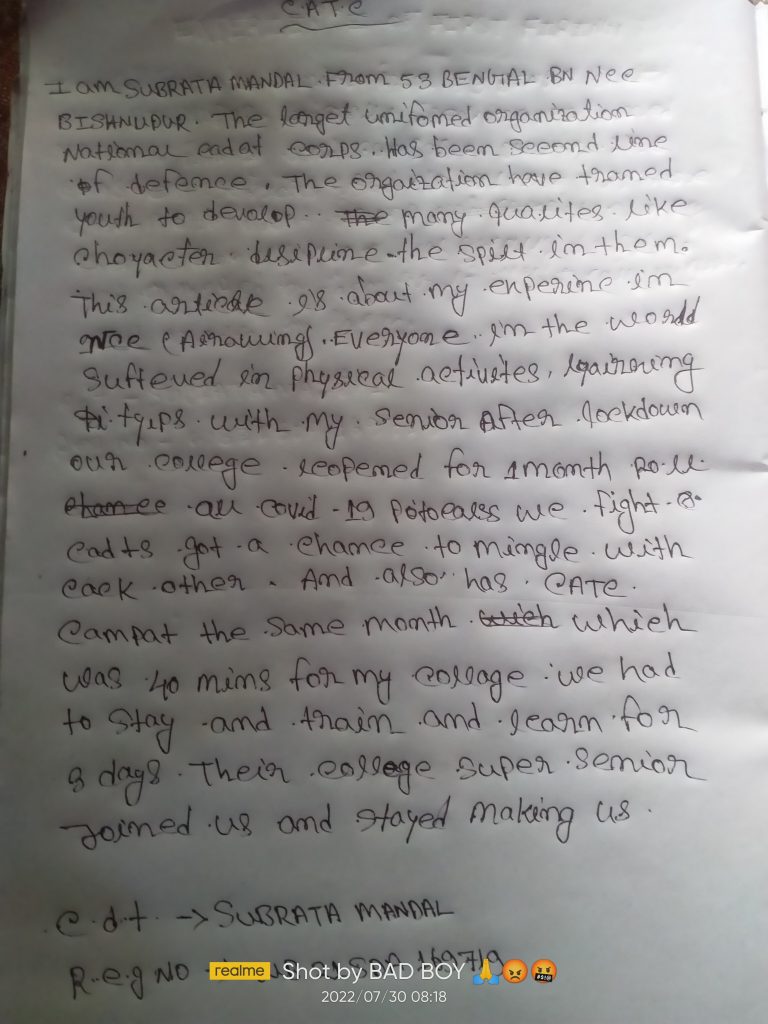 CATC
I am SUBRATA MANDAL From 53 BENGAL BN Ncc
BISHNUPUR. The langet unifomed organization
National cadat corps. Has been second line
of defence. The orgaization have trained
youth to devalop.. many qualites like
choyacter disipline the spilt in them.
This article is about my experine in
Ncc (Airawing). Everyone in the world
Suffeued in physical activites,
with my senior After lockdown
our college reopened for 1 month
all covid -19 we fight
cadts got a chance to mingle with
cack other. And also has CATC
Campat the same month which
was 40 mins for my collage we had
to stay and train and learn for
8 days. Their college super senior
Joined us and stayed making us.
C.d.t. -> SUBRATA MANDAL
R.e.g NO
realme Shot by BAD BOY 🙏😡🤬
2022/07/30 08:18